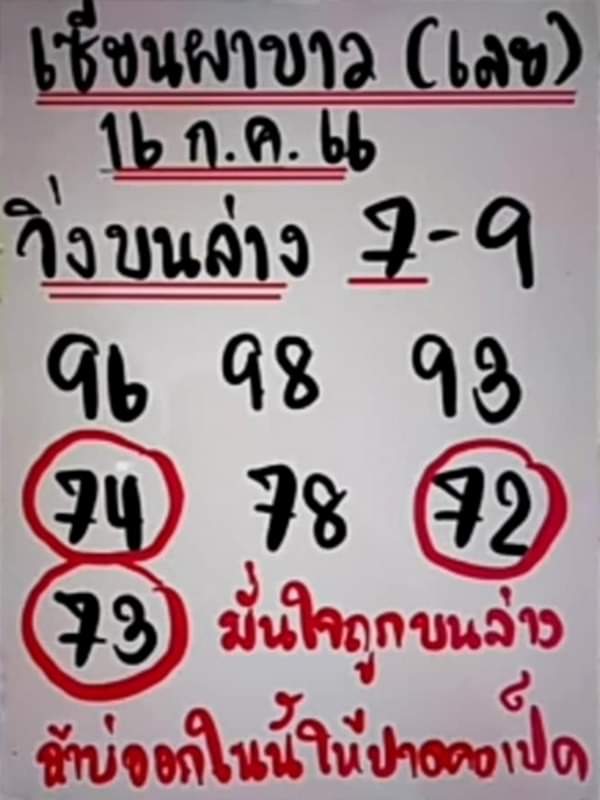 เซียนผาขาว (เลย)
16 ก.ค. 66
วิ่งบนล่าง 7-9
96 98 93
74 78 72
73 มั่นใจถูกบนล่าง
ถ้าบ่ออกในนี้ให้ปาดคอเป็ด